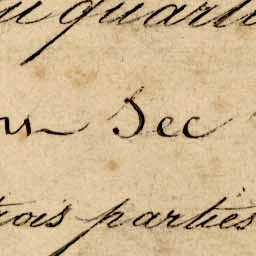 quarti
Sec
trois parties